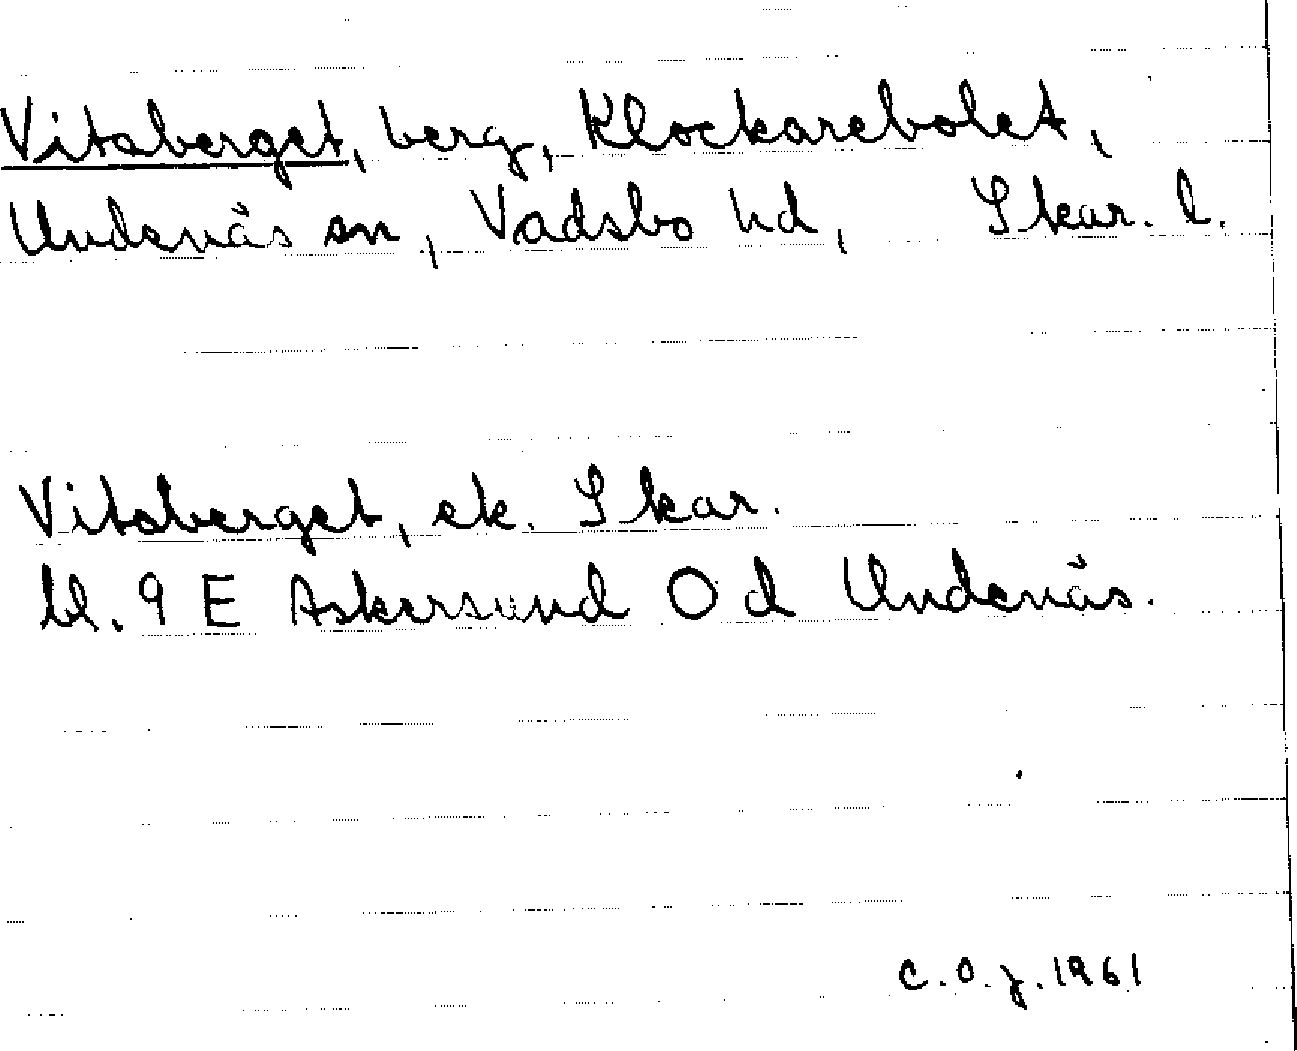 Vitaberget, berg, Klockarebolet,
Undenäs sn, Vadsbo hd, Skar. l.
Vitaberget, ek. Skar.
bl. 9 E Askersund O d Undenäs.
C.O.J. 1961